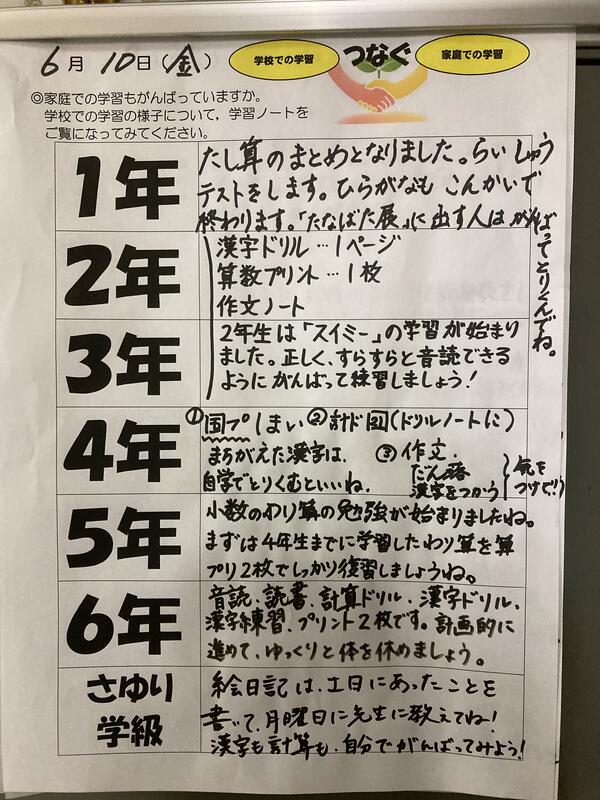 6月10日(金)
学校での学習
つなぐ
家庭での学習
◎家庭での学習もがんばっていますか。
学校での学習の様子について，学習ノートを
ご覧になってみてください。
1年
たし算のまとめとなりました。らいしゅう
テストをします。ひらがなも こんかいで
終わります。「たなばた展」に出す人は がんばってとりくんでね。
2年
漢字ドリル…1ページ
算数プリント…1枚
作文ノート
3年
2年生は「スイミー」の学習が始まり
ました。正しく、すらすらと音読できる
ようにがんばって練習しましょう!
4年
①国プしまい ②計ド(ドリルノートに)
まちがえた漢字は、
自学でとりくむといいね。
③作文.
だん落
漢字をつかう
気を
つけて!!
5年
小数のわり算の勉強が始まりましたね。
まずは4年生までに学習したわり算を算
プリ2枚でしっかり復習しましょうね。
6年
音読、読書、計算ドリル、漢字ドリル、
漢字練習、プリント2枚です。計画的に
進めて、ゆっくりと体を休めましょう。
さゆり
学級
絵日記は、土日にあったことを
書いて、月曜日に先生に教えてね!
漢字も計算も、自分でがんばってみよう!